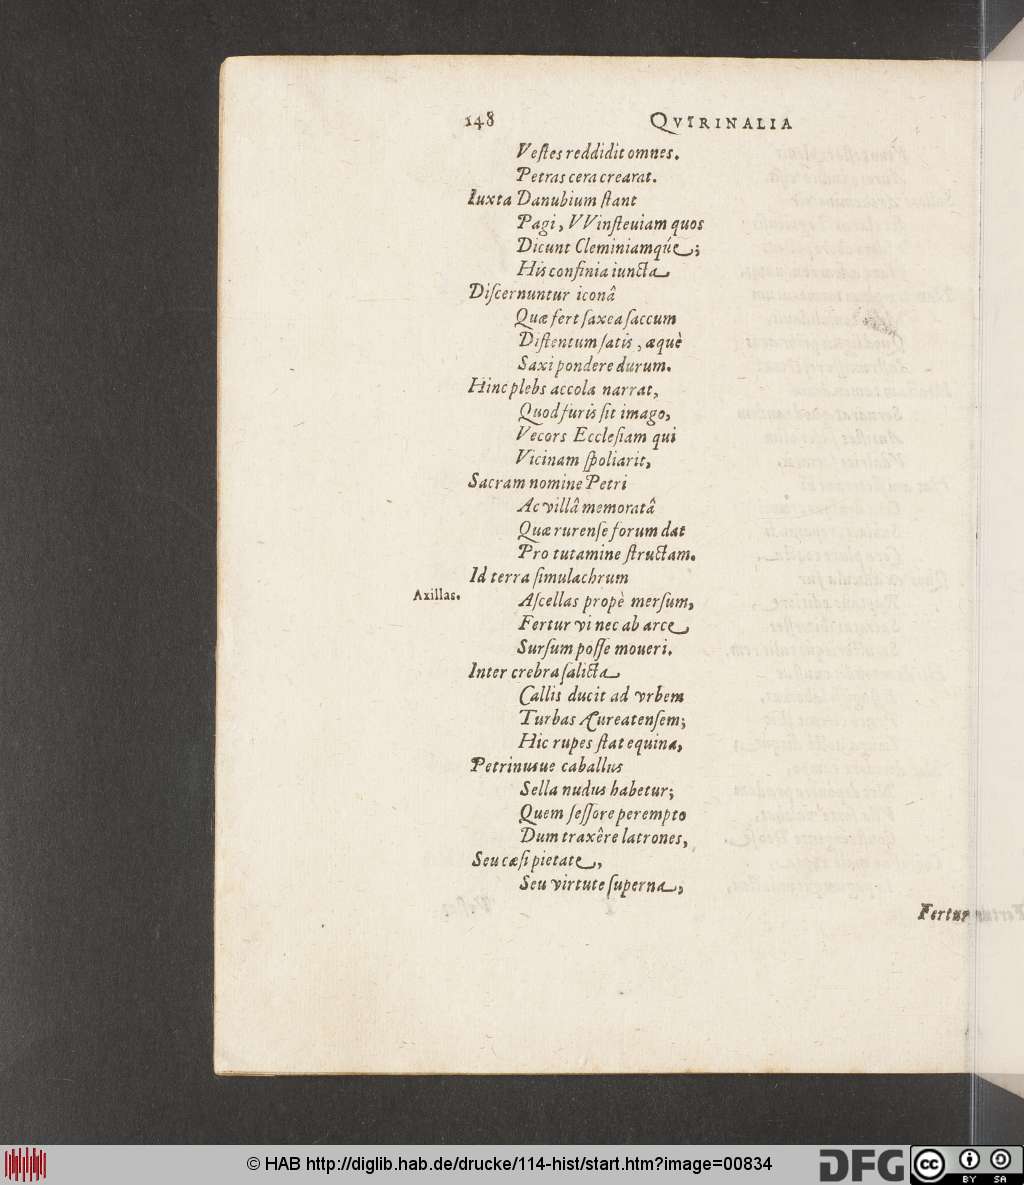 148 QVIRINALIA
Veſtes reddidit omnes.
Petras cera crearat.
Iuxta Danubium ſtant
Pagi, VVinſteuiam quos
Dicunt Cleminiamqúe;
His confinia iuncta
Diſcernuntur iconâ
Quæ fert ſaxea ſaccum
Diſtentum ſatis, æquè
Saxi pondere durum.
Hinc plebs accola narrat,
Quod furis ſit imago,
Vecors Eccleſiam qui
Vicinam ſpoliarit,
Sacram nomine Petri
Ac villâ memoratâ
Quæ rurenſe forum dat
Pro tutamine ſtructam.
Id terra ſimulachrum
Axillas. Aſcellas propè merſum,
Fertur vi nec ab arce
Surſum poſſe moueri.
Inter crebra ſalicta
Callis ducit ad vrbem
Turbas Æureatenſem;
Hic rupes ſtat equina,
Petrinusue caballus
Sella nudus habetur;
Quem ſeſſore perempto
Dum traxêre latrones,
Seu cæſi pietate,
Seu virtute ſuperna,
Fertur
© HAB http://diglib.hab.de/drucke/114-hist/start.htm?image=00834
DFG
cc
BY SA